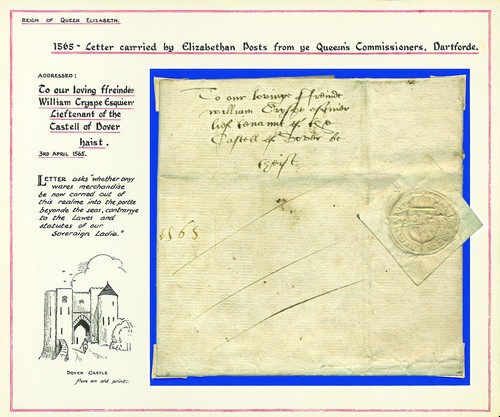 REIGN OF QUEEN ELIZABETH.
1565 ~ Letter carried by Elizabethan Posts from ye Queen's Commissioners, Dartforde.
ADDRESSED:
To our loving ffreinde
William Cryspe Esquier
Lieftenant of the
Castell of Dover
haist.
3RD APRIL 1565.
LETTER asks "whether any
wares merchandise
be now carried out of
this realme into the partes
beyonde the seas, contrarye
to the Lawes and
statutes of our
Soveraign Ladie."
To our lovinge ffreinde
William Cryspe esquier
lieftenannt of the
Castell of Dover
haist
1565
DOVER CASTLE
from an old print.